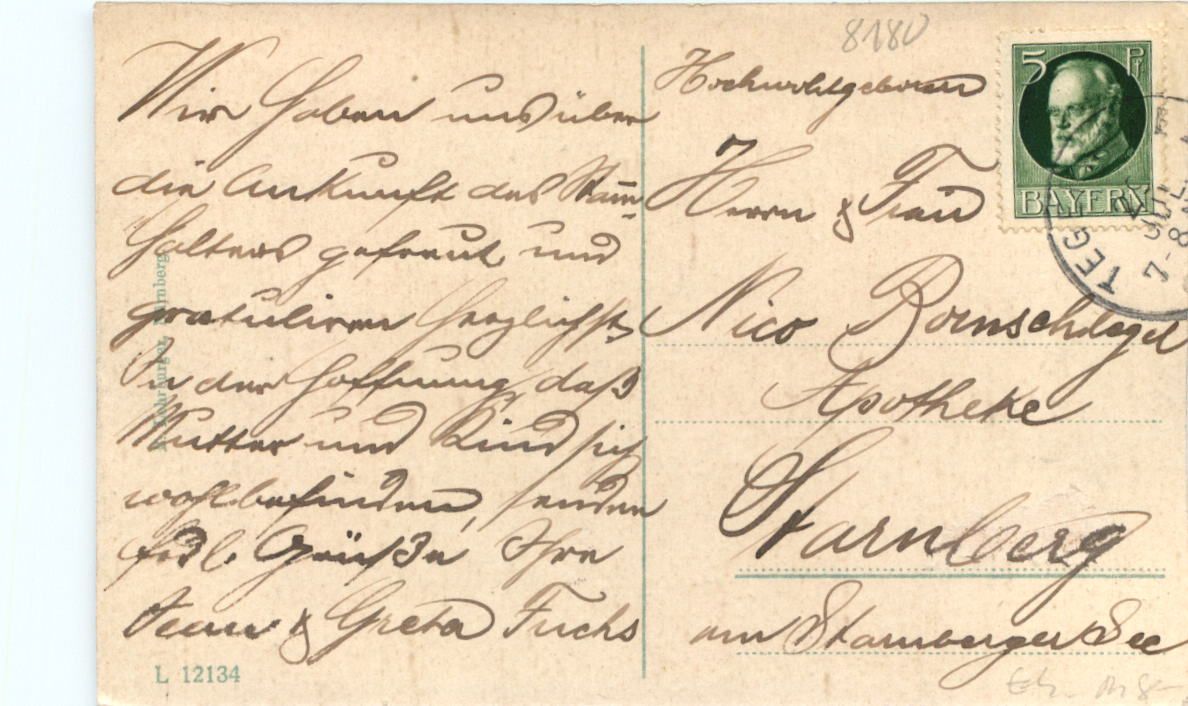 Wir haben uns über
die Ankunft des Stamm-
halters gefreut und
gratulieren herzlichst.
In der Hoffnung, daß
Mutter und Kind sich
wohlbefinden, senden
frdl. Grüße Ihre
& Greta Fuchs
L 12134
Nürnberg
8180
Hochwohlgeboren
Herrn & Frau
Nico
Apotheke
Starnberg
am Starnberger See
5 Pf
BAYERN
TEG
JUL
7-8